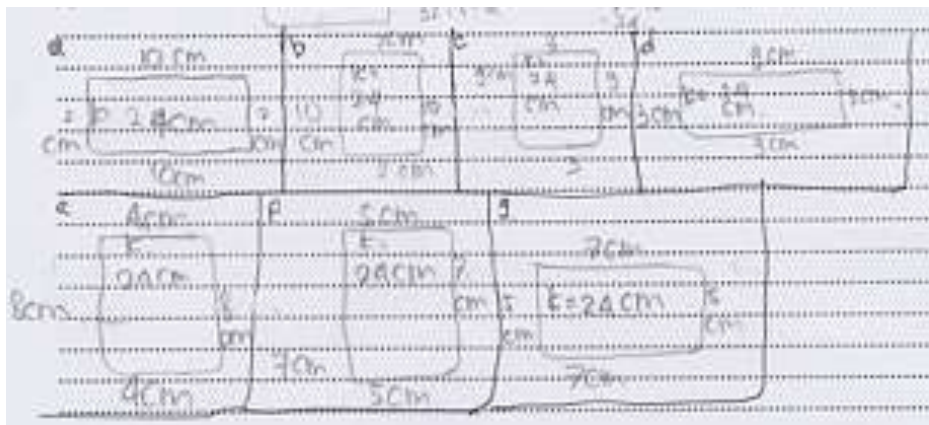 a
10 cm
2 cm
24cm
2 cm
10cm
b
10 cm
24 cm
10 cm
2 cm
c
3
24 cm
9 cm
3
d
9cm
3cm
24 cm
3cm
9cm
e
4cm
24cm
8cm
8 cm
4cm
f
5cm
24cm
7 cm
7cm
5cm
g
7cm
5 cm
k=24cm
5 cm
7cm